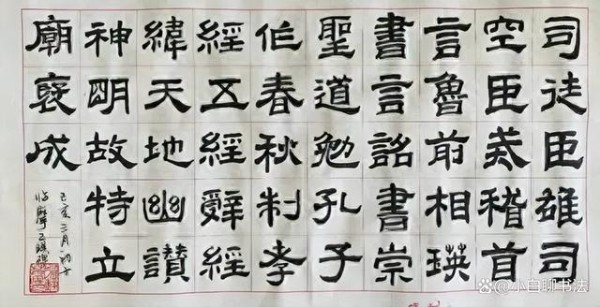 司徒臣雄司
空臣戒稽首
言魯前相瑛
書言詔書崇
聖道勉孔子
作春秋制孝
經五經辭經
緯天地幽讚
神明故特立
廟褒成
己亥三月初
临
小白聊书法